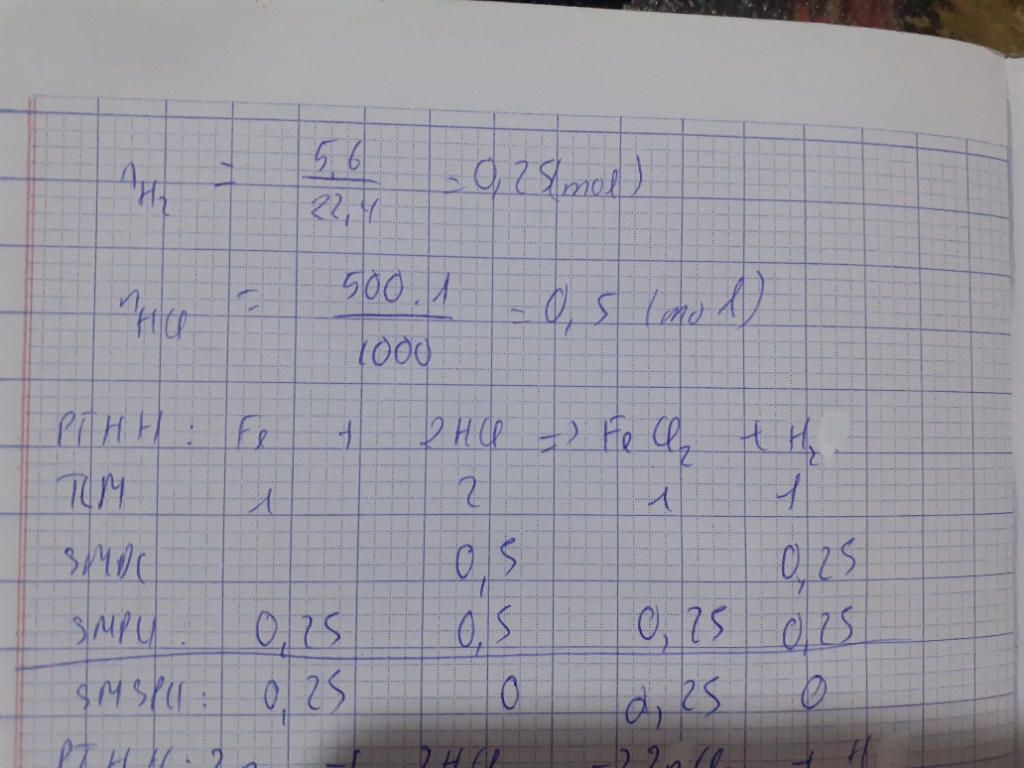 nH₂ = 5,6 / 22,4 = 0,25 (mol)
nHCl = 500.1 / 1000 = 0,5 (mol)
PTHH : Fe + 2HCl => FeCl₂ + H₂
TLM 1 2 1 1
SMDC 0,5 0,25
SMPU : 0,25 0,5 0,25 0,25
SMSPU : 0,25 0 0,25 0
PTHH : Zn + 2HCl => ZnCl₂ + H